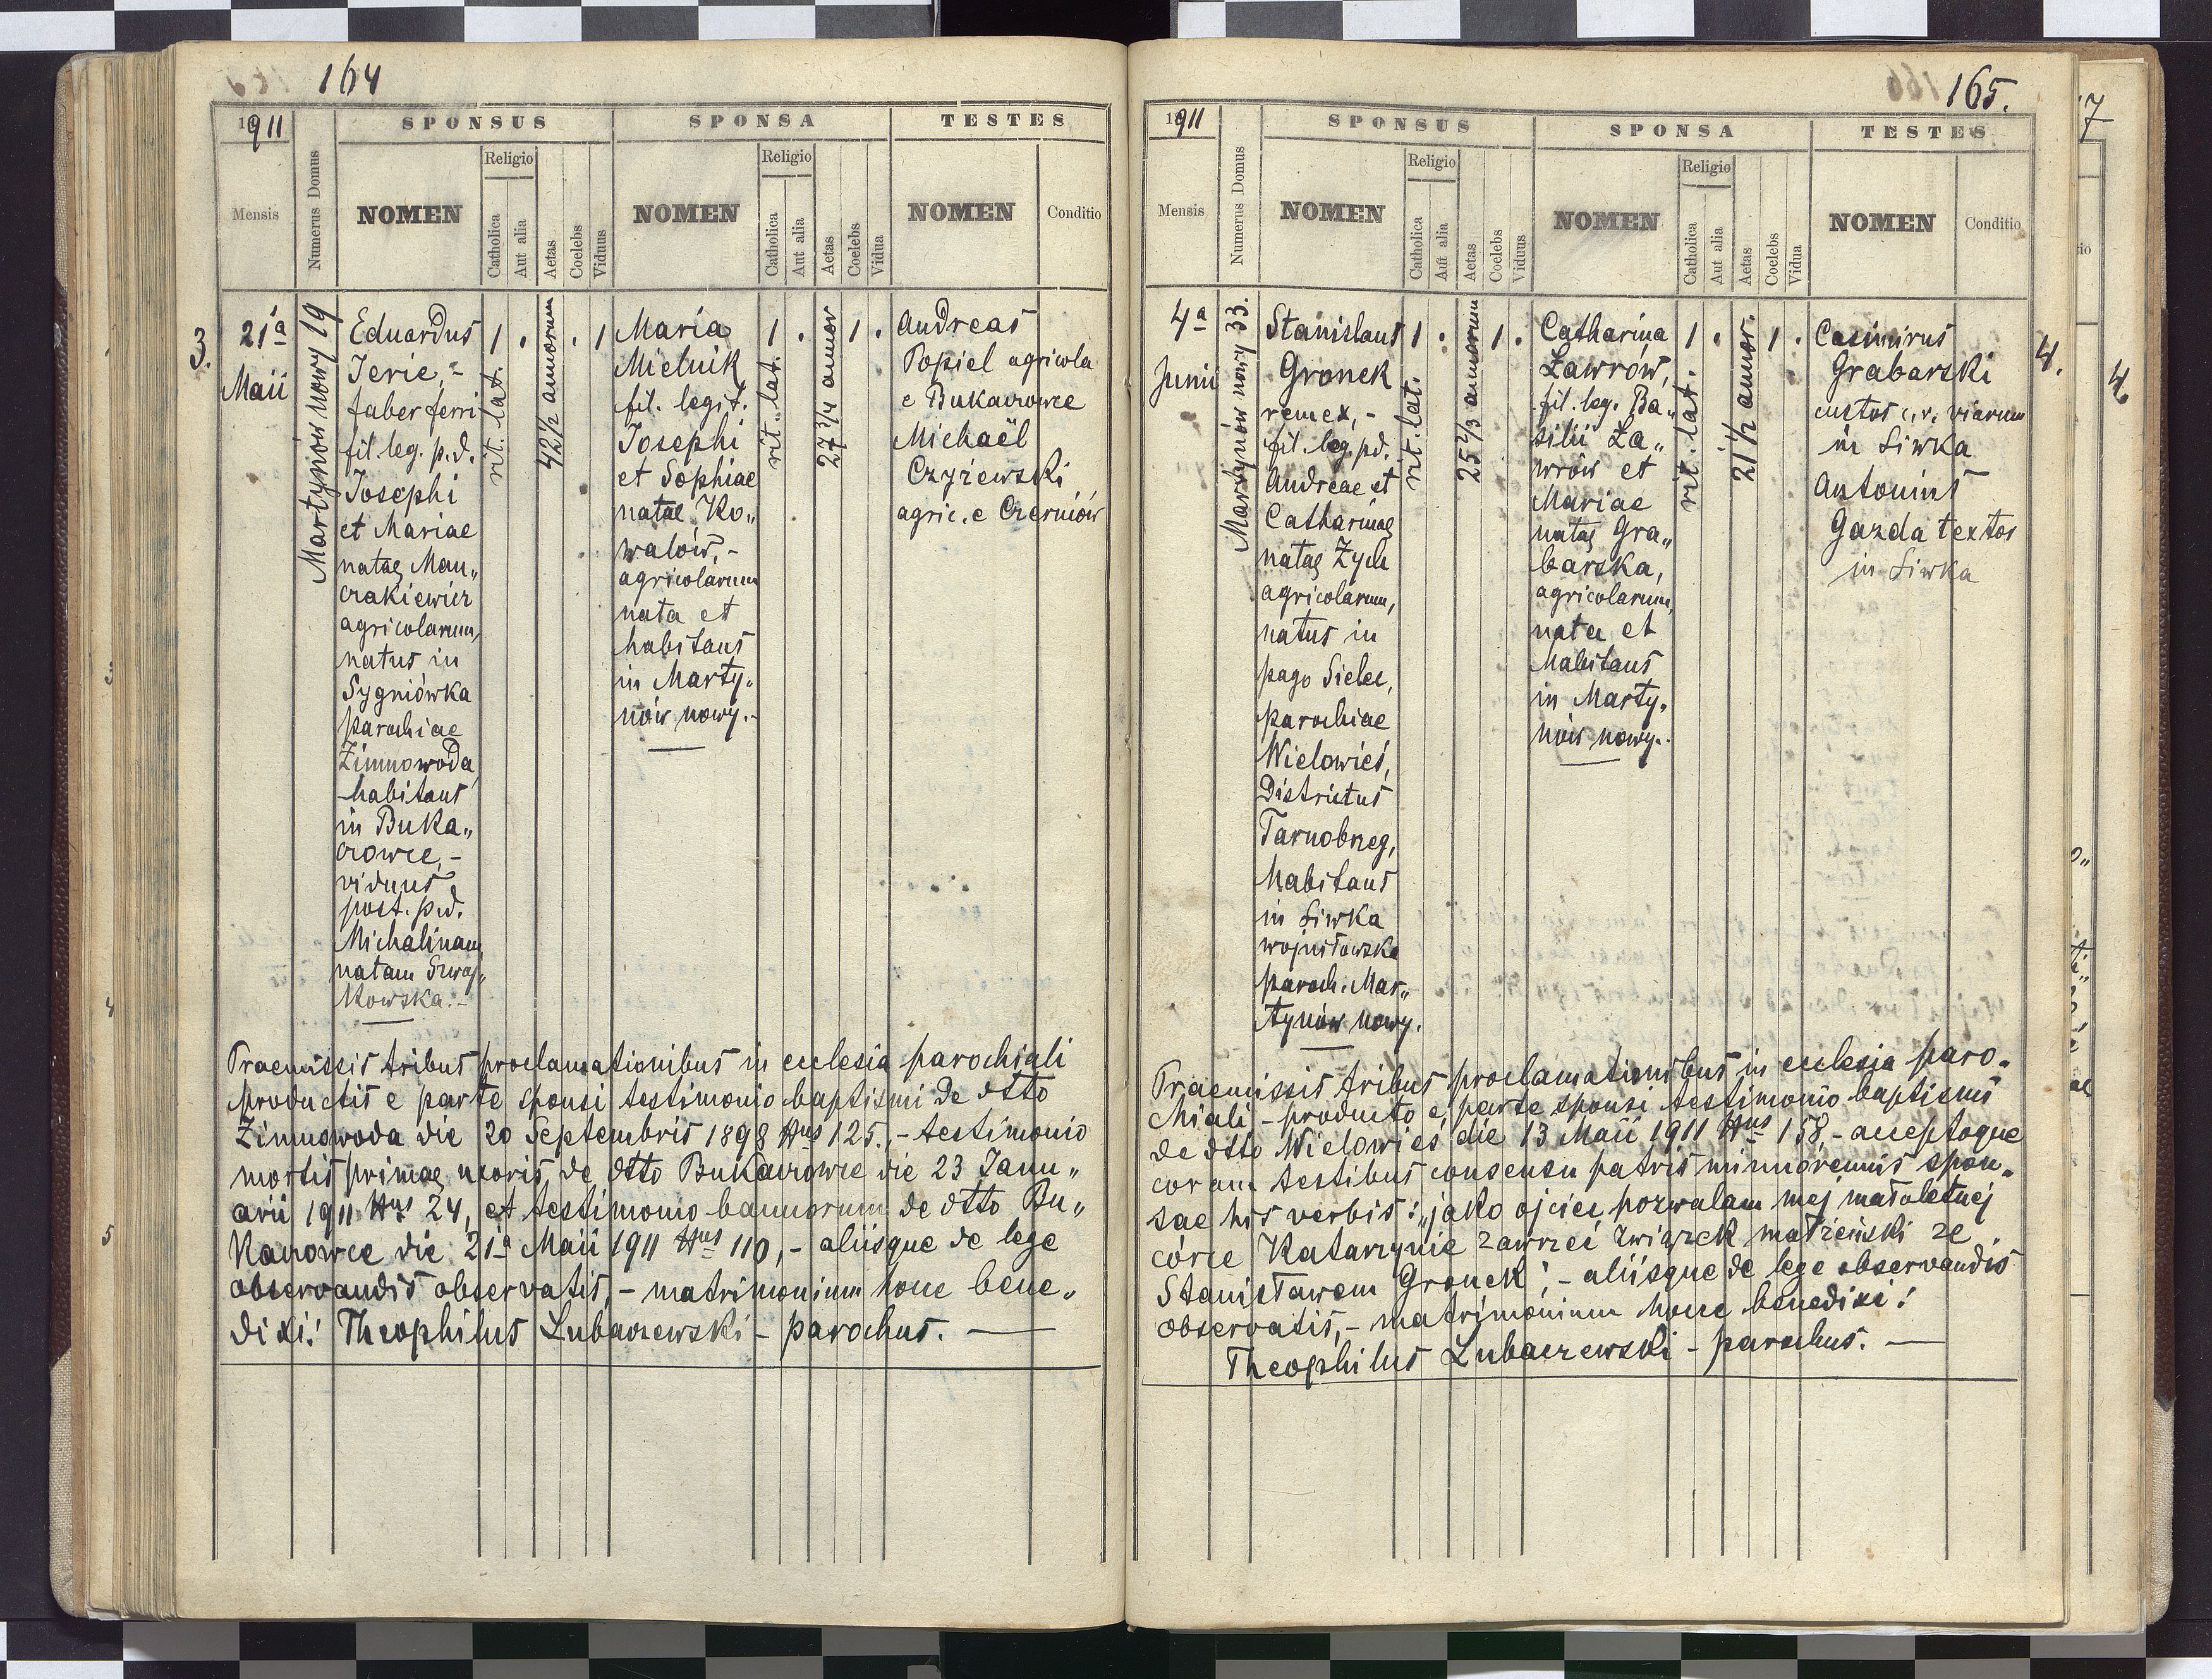 164
1911
SPONSUS
SPONSA
TESTES
Mensis
Numerus Domus
NOMEN
Religio
Catholica
Aut alia
Aetas
Coelebs
Viduus
NOMEN
Religio
Catholica
Aut alia
Aetas
Coelebs
Vidua
NOMEN
Conditio
3.
21ª
Maii
Martynów nowy 19
Eduardus
Jerie,-
faber ferri
fil. leg. p.d.
Josephi
et Mariae
natae Man„
czakiewicz
agricolarum,
natus in
Sygniówka
parochiae
Zimnowoda
habitans
in Buka„
czowce,-
viduus
post. p.d.
Michalinam
natam Szwaj„
kowska.-
1
rit. lat.
.
42 1/2 annorum
.
1
Maria
Mielnik
fil. legit.
Josephi
et Sophiae
natae Ko„
walów,-
agricolarum
nata et
habitans
in Marty„
nów nowy.-
1
rit. lat.
.
27 3/4 annor
1
.
Andreas
Popiel agricola
e Bukaczowce
Michaël
Czyżewski
agric. e Czerniów
Praemissis tribus proclamationibus in ecclesia parochiali
productis e parte sponsi testimonio baptismi de dtto
Zimnowoda die 20 Septembris 1898 Nus 125.,- testimonio
mortis primae uxoris de dtto Bukaczowce die 23 Janu„
arii 1911 Nus 24, et testimonio bannorum de dtto Bu„
kaczowce die 21ª Maii 1911 Nus 110,- aliisque de lege
observandis observatis,- matrimonium hocce bene„
dixi! Theophilus Lubaczewski - parochus.
165.
1911
SPONSUS
SPONSA
TESTES
Mensis
Numerus Domus
NOMEN
Religio
Catholica
Aut alia
Aetas
Coelebs
Viduus
NOMEN
Religio
Catholica
Aut alia
Aetas
Coelebs
Vidua
NOMEN
Conditio
4ª
Junii
Martynów nowy 33.
Stanislaus
Gronek
remex,-
fil. leg. p.d.
Andreae et
Catharinae
natae Zych
agricolarum,
natus in
pago Sielec,
parochiae
Wielowieś,
Districtus
Tarnobrzeg,
habitans
in Siwka
wojniłowska
paroch. Mar„
tynów nowy.
1
rit. lat.
.
25 2/3 annorum
1
.
Catharina
Ławrów,
fil. leg. Ba„
silii Ła„
wrów et
Mariae
natae Gra„
barska,
agricolarum,
nata et
habitans
in Marty„
nów nowy.
1
rit. lat.
.
21 1/2 annor.
1
.
Casimirus
Grabarski
custos c.r. viarum
in Siwka
Antonius
Gazda textor
in Siwka
4.
Praemissis tribus proclamationibus in ecclesia paro„
chiali,- producto e parte sponsi testimonio baptismi
de dtto Wielowieś die 13 Maii 1911 Nus 158,- acceptoque
coram testibus consensu patris minorennis spon„
sae his verbis: „jako ojciec pozwalam mej małoletniej
córce Katarzynie zawrzeć związek małżeński ze
Stanisławem Gronek",- aliisque de lege observandis
observatis,- matrimonium hocce benedixi!
Theophilus Lubaczewski - parochus.